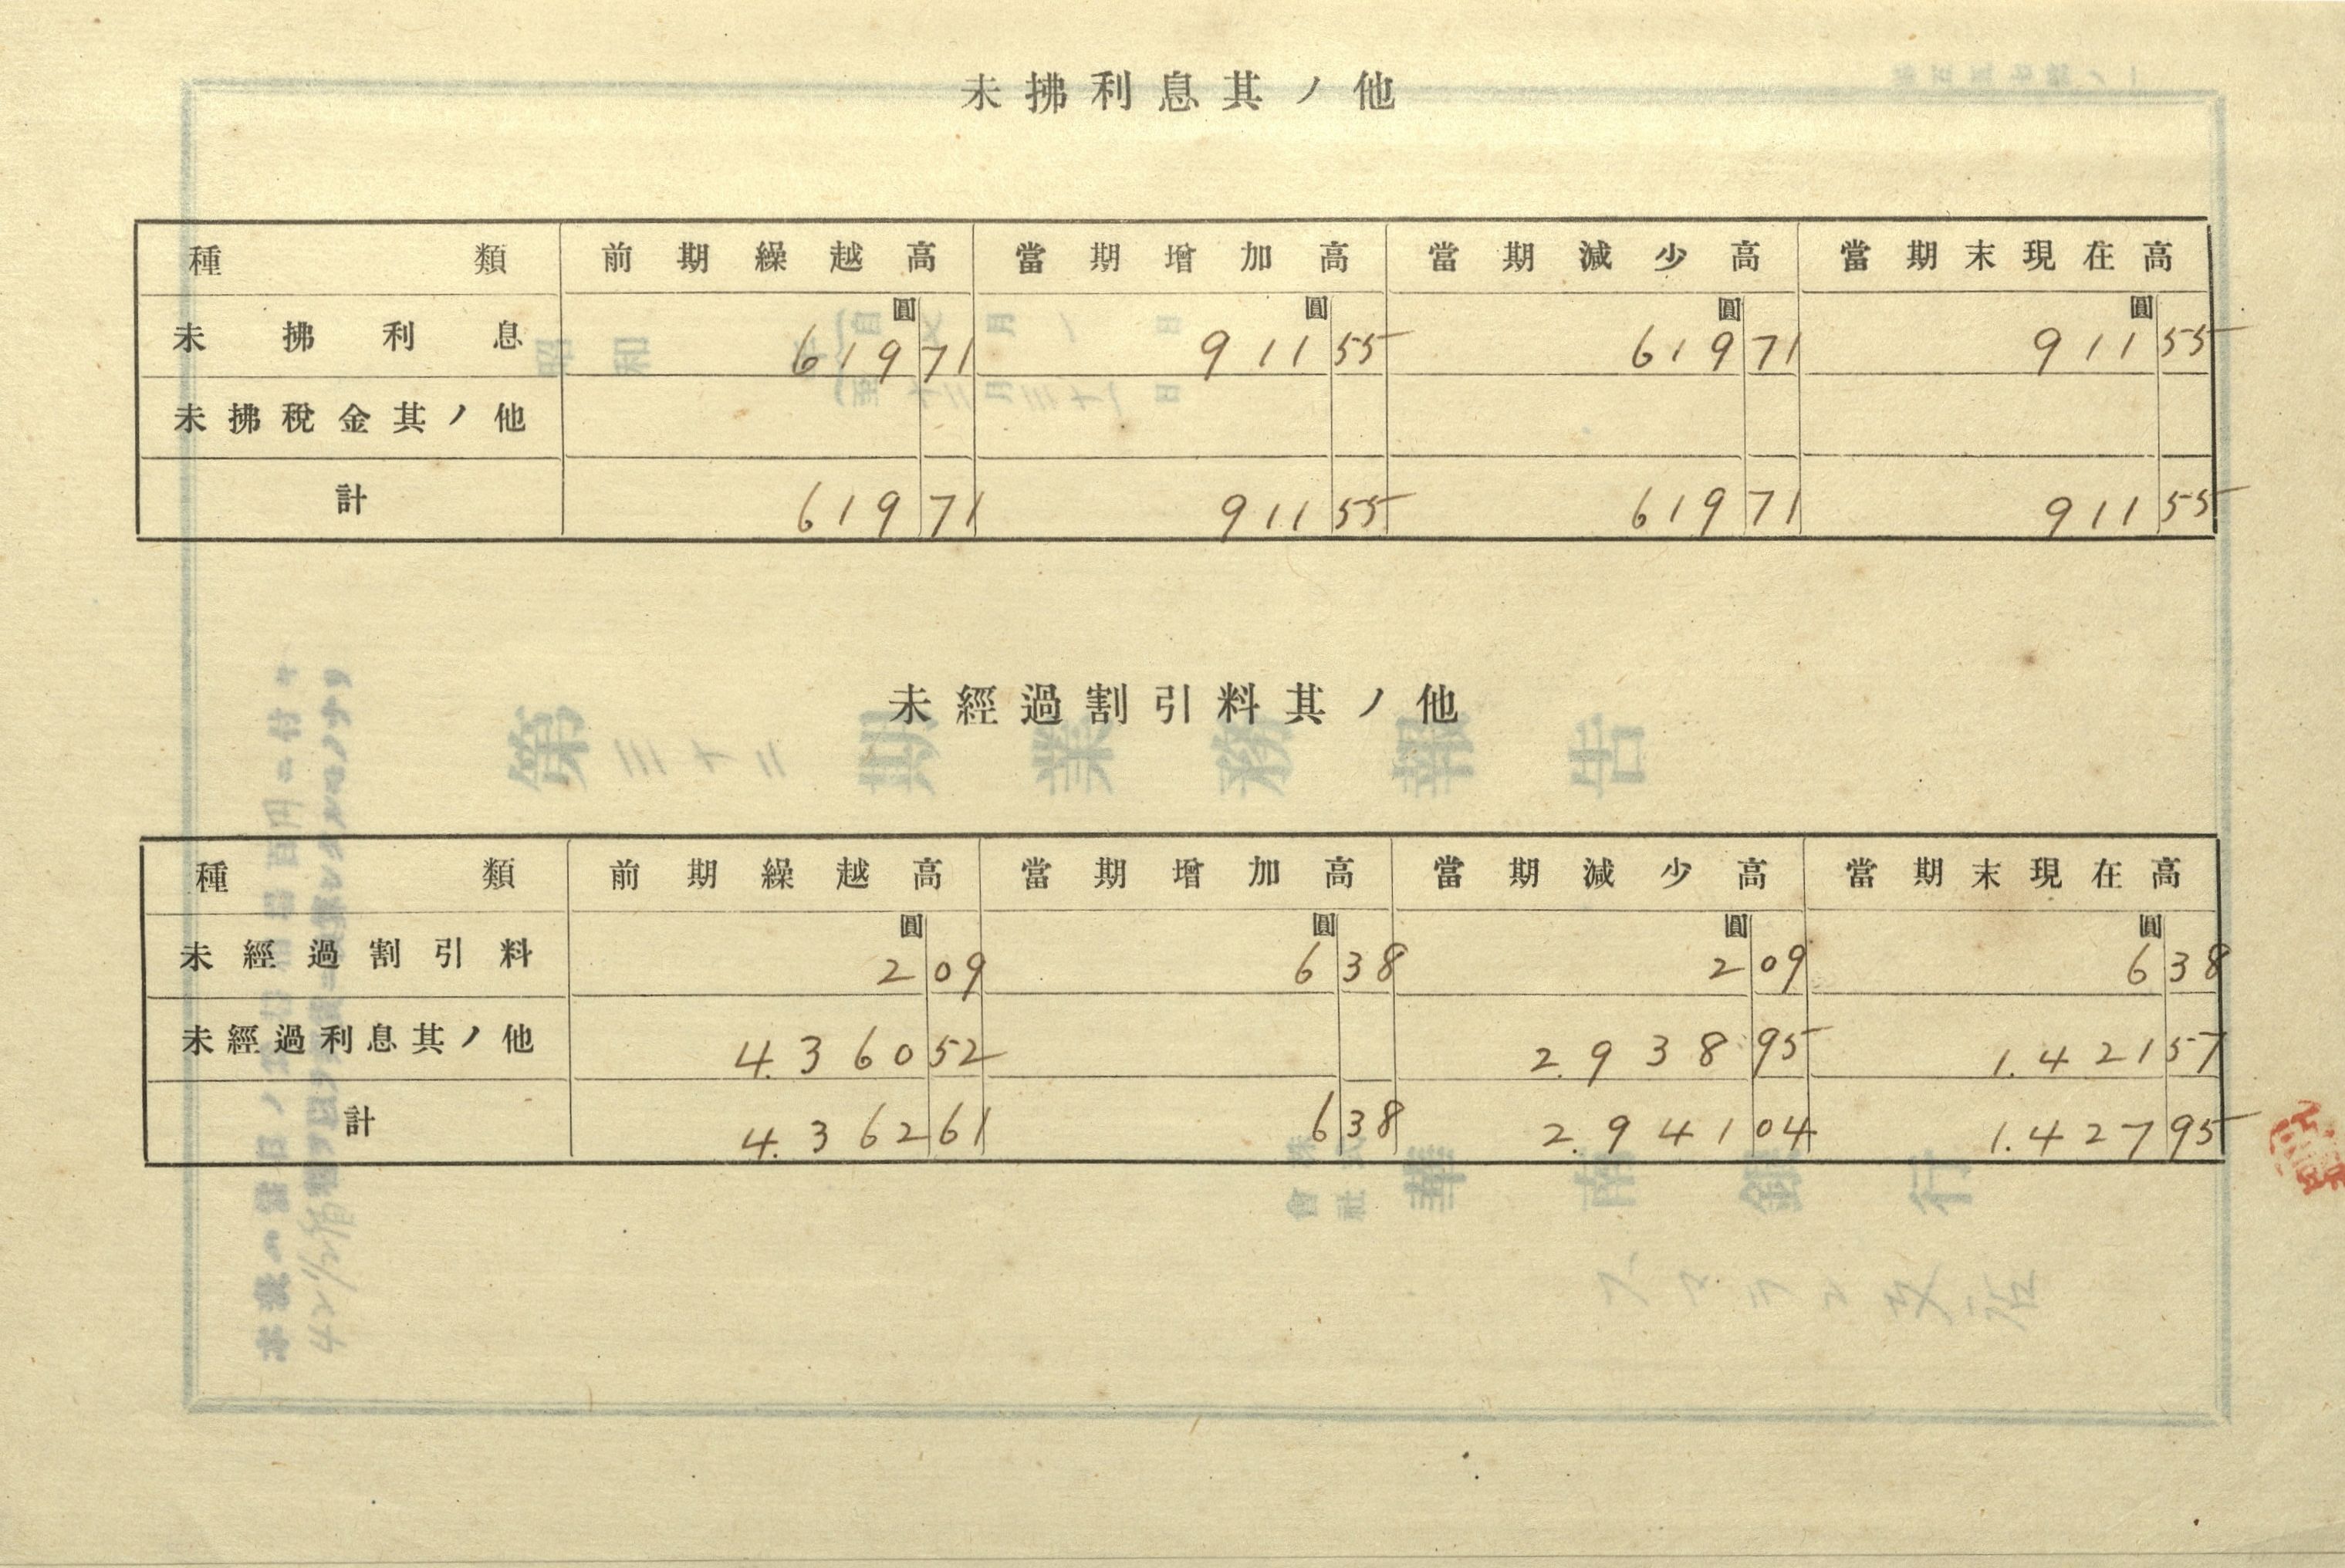 未拂利息其ノ他
種類 前期繰越高 當期增加高 當期減少高 當期末現在高
圓 圓 圓 圓
未拂利息 619 71 911 55 619 71 911 55
未拂稅金其ノ他
計 619 71 911 55 619 71 911 55
未經過割引料其ノ他
種類 前期繰越高 當期增加高 當期減少高 當期末現在高
圓 圓 圓 圓
未經過割引料 2 09 6 38 2 09 6 38
未經過利息其ノ他 4.360 52 2.938 95 1.421 57
計 4.362 61 6 38 2.941 04 1.427 95
第三十二期業務報告
株式會社 華南銀行
スマラン支店